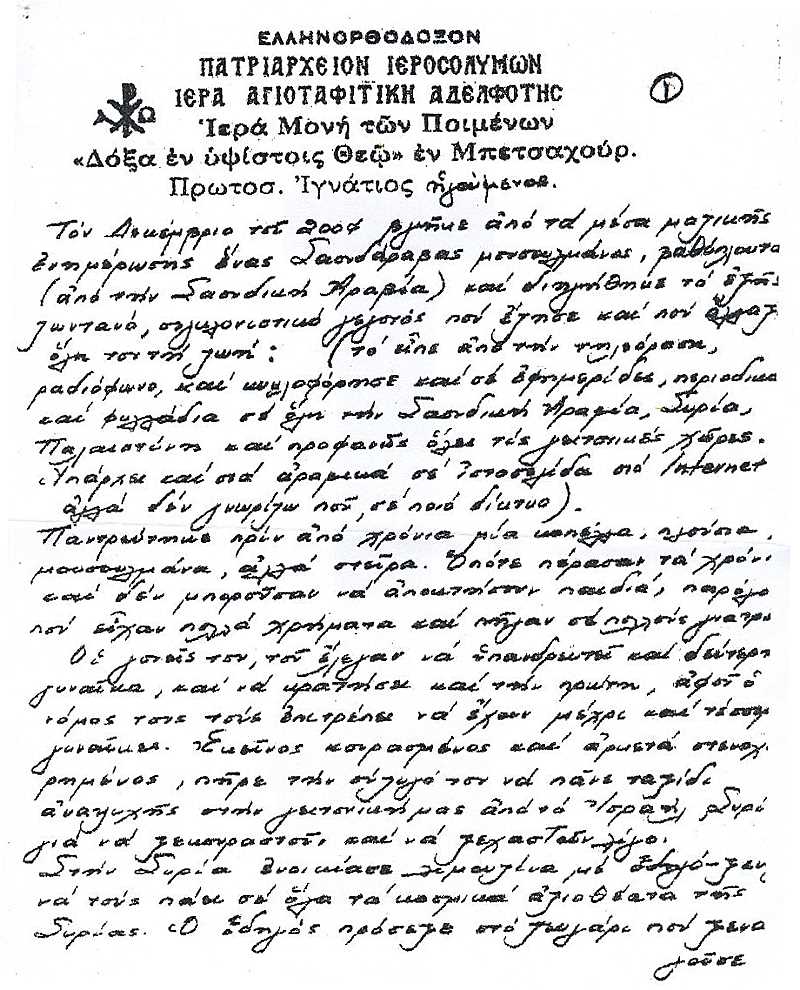 ΕΛΛΗΝΟΡΘΟΔΟΞΟΝ
ΠΑΤΡΙΑΡΧΕΙΟΝ ΙΕΡΟΣΟΛΥΜΩΝ
ΙΕΡΑ ΑΓΙΟΤΑΦΙΤΙΚΗ ΑΔΕΛΦΟΤΗΣ
Α Ω
1
Ἱερά Μονή τῶν Ποιμένων
«Δόξα ἐν ὑψίστοις Θεῷ» ἐν Μπετσαχούρ.
Πρωτοσ. Ἰγνάτιος ἡγούμενος.
Τόν Δεκέμβριο τοῦ 2004 βγῆκε ἀπό τά μέσα μαζικῆς
ἐνημέρωσης ἕνας Σαουδάραβας μουσουλμάνος, βαθύπλουτο
(ἀπό τήν Σαουδική Ἀραβία) καί διηγήθηκε τό ἑξῆς
ζωντανό, συγκλονιστικό γεγονός πού ἔζησε καί πού ἄλλαξ
ὅλη του τή ζωή: (τό εἶπε ἀπό τήν τηλεόραση,
ραδιόφωνο, καί κυκλοφόρησε καί σέ ἐφημερίδες, περιοδικα
καί φυλλάδια σέ ὅλη τήν Σαουδική Ἀραβία, Συρία,
Παλαιστίνη καί προφανῶς ὅλες τίς γειτονικές χῶρες.
Ὑπάρχει καί στά ἀραβικά σέ ἱστοσελίδα στό Internet
ἀλλά δέν γνωρίζω ποῦ, σέ ποιό δίκτυο).
Παντρεύτηκε πρίν ἀπό χρόνια μία κοπέλλα, πλούσια,
μουσουλμάνα, ἀλλά στεῖρα. Ὁπότε πέρασαν τά χρόνι
καί δέν μποροῦσαν νά ἀποκτήσουν παιδιά, παρόλο
πού εἶχαν πολλά χρήματα καί πῆγαν σέ πολλούς γιατρο
Οἱ γονεῖς του, τοῦ ἔλεγαν νά ὑπανδρευτεῖ καί δεύτερη
γυναίκα, καί νά κρατήσει καί τήν πρώτη, ἀφοῦ ὁ
νόμος τους τούς ἐπιτρέπει νά ἔχουν μέχρι καί τέσσερ
γυναῖκες. Ἐκεῖνος κουρασμένος καί ἀρκετά στεναχω
ρημένος, πῆρε τήν σύζυγό του νά πᾶνε ταξίδι
ἀναψυχῆς στήν γειτονική μας ἀπό τό Ἰσραήλ Συρί
γιά νά ξεκουραστοῦν καί νά ξεχαστοῦν λίγο.
Στήν Συρία ἐνοικίασε λιμουζίνα μέ ὁδηγό-ξεν
νά τούς πάει σέ ὅλα τά κοσμικά ἀξιοθέατα τῆς
Συρίας. Ὁ ὁδηγός πρόσεξε στό ζευγάρι πού ξενα
γοῦσε